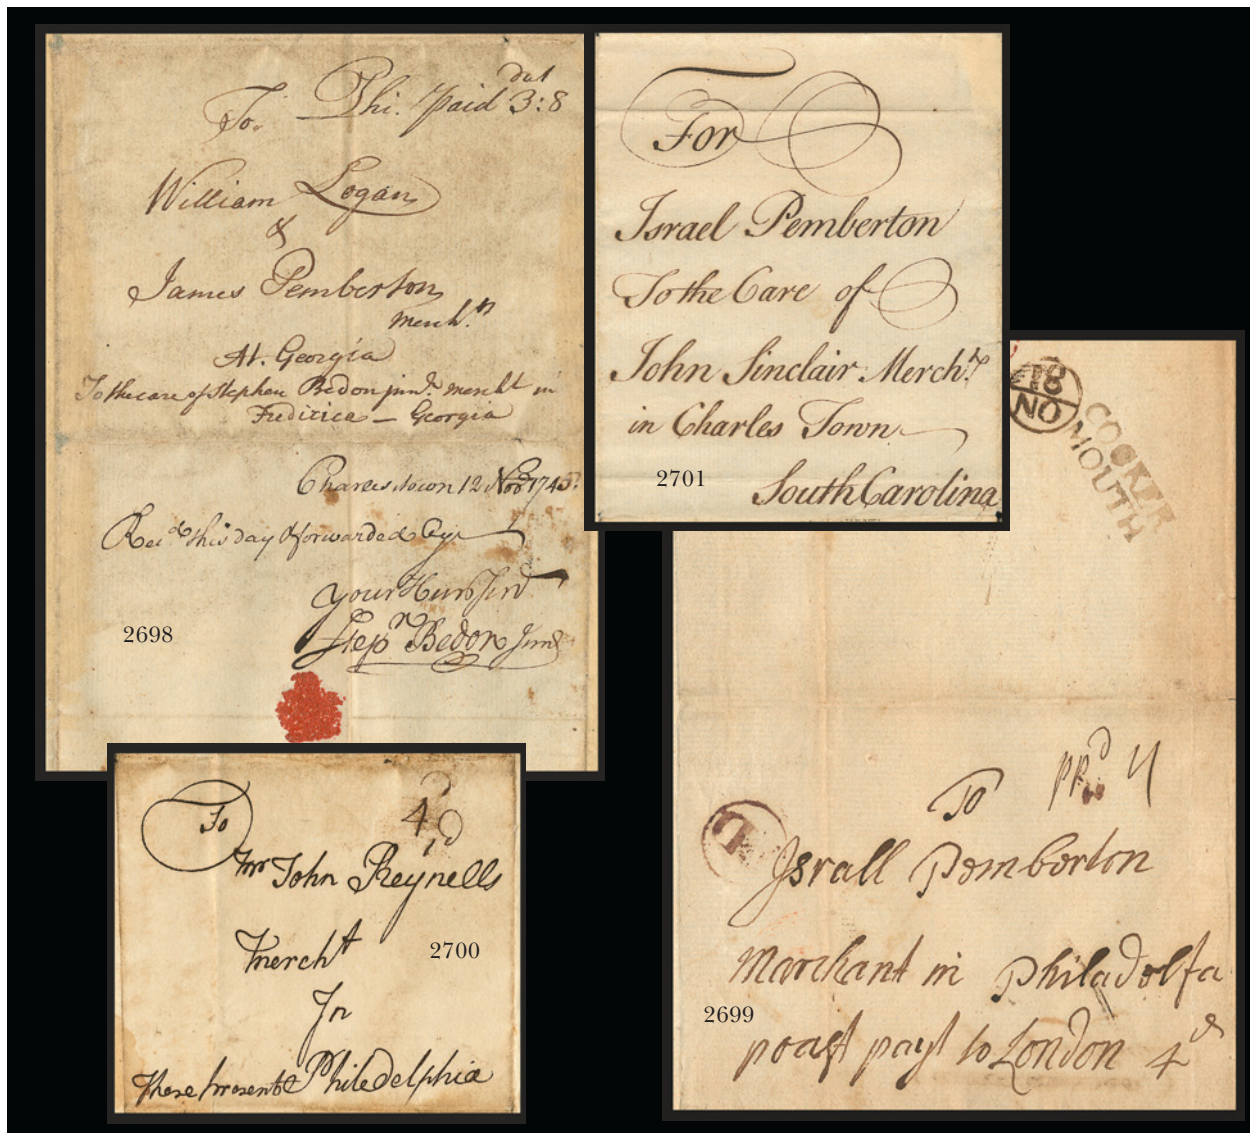 dwt
To. Phi. paid 3:8
William Logan
&
James Pemberton
Merch.ts
At. Georgia
To the care of Stephen Bedon junr. mercht in
Fredirica – Georgia
Charlestown 12 Nov 1745.
Recd this day & forwarded by
your Hum Serv
Step.n Bedon Junr
2698
For
Israel Pemberton
To the Care of
John Sinclair Mercht.
in Charles Town
2701
South Carolina
18
NO
COCKER
MOUTH
To ppd 4
Israll Pemberton
Marchant in Philadolfa
2699
poast payt to London 4d
To
4d
Mr John Reynells
Mercht
2700
In
These present Philedelphia